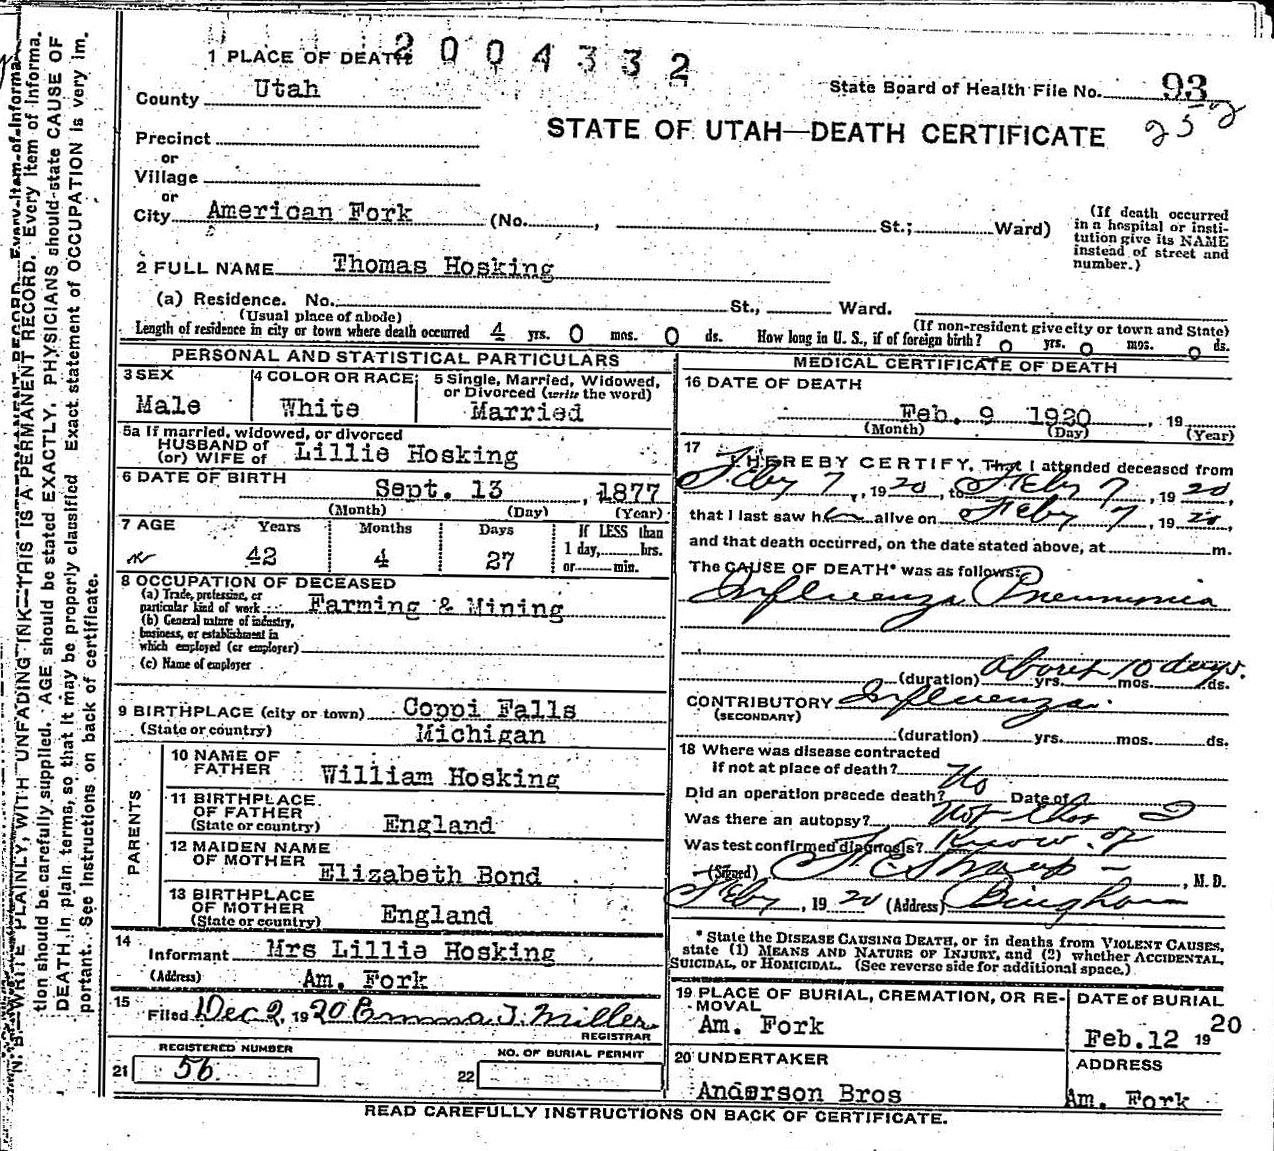 2004332
1 PLACE OF DEATH
County Utah
State Board of Health File No. 93
252
STATE OF UTAH—DEATH CERTIFICATE
Precinct
or
Village
or
City American Fork (No. , St.; Ward)
(If death occurred in a hospital or institution give its NAME instead of street and number.)
2 FULL NAME Thomas Hosking
(a) Residence. No. St., Ward.
(Usual place of abode) (If non-resident give city or town and State)
Length of residence in city or town where death occurred 4 yrs. 0 mos. 0 ds. How long in U. S., if of foreign birth? 0 yrs. 0 mos. 0 ds.
PERSONAL AND STATISTICAL PARTICULARS
3 SEX Male
4 COLOR OR RACE White
5 Single, Married, Widowed, or Divorced (write the word) Married
5a If married, widowed, or divorced
HUSBAND of
(or) WIFE of Lillie Hosking
6 DATE OF BIRTH Sept. 13, 1877
(Month) (Day) (Year)
7 AGE Years Months Days If LESS than
42 4 27 1 day, hrs.
or min.
8 OCCUPATION OF DECEASED
(a) Trade, profession, or
particular kind of work Farming & Mining
(b) General nature of industry,
business, or establishment in
which employed (or employer)
(c) Name of employer
9 BIRTHPLACE (city or town) Coppi Falls
(State or country) Michigan
PARENTS
10 NAME OF FATHER William Hosking
11 BIRTHPLACE OF FATHER (State or country) England
12 MAIDEN NAME OF MOTHER Elizabeth Bond
13 BIRTHPLACE OF MOTHER (State or country) England
14 Informant Mrs Lillie Hosking
(Address) Am. Fork
15 Filed Dec 2, 1920 Emma J. Miller
REGISTRAR
REGISTERED NUMBER
21 56
NO. OF BURIAL PERMIT
22
MEDICAL CERTIFICATE OF DEATH
16 DATE OF DEATH
Feb. 9 1920, 19
(Month) (Day) (Year)
17 I HEREBY CERTIFY, That I attended deceased from
Feby 7, 1920, to Feby 7, 1920,
that I last saw him alive on Feby 7, 1920,
and that death occurred, on the date stated above, at m.
The CAUSE OF DEATH* was as follows:
Influenza Pneumonia
about 10 days.
(duration) yrs. mos. ds.
CONTRIBUTORY Influenza.
(SECONDARY)
(duration) yrs. mos. ds.
18 Where was disease contracted
if not at place of death?
Did an operation precede death? No Date of
Was there an autopsy? Not that I
Was test confirmed diagnosis? Know of
(Signed) , M. D.
Feby, 1920 (Address) Bingham
* State the DISEASE CAUSING DEATH, or in deaths from VIOLENT CAUSES,
state (1) MEANS AND NATURE OF INJURY, and (2) whether ACCIDENTAL,
SUICIDAL, or HOMICIDAL. (See reverse side for additional space.)
19 PLACE OF BURIAL, CREMATION, OR RE-
MOVAL
Am. Fork
DATE of BURIAL
Feb. 12 1920
20 UNDERTAKER
Anderson Bros
ADDRESS
Am. Fork
READ CAREFULLY INSTRUCTIONS ON BACK OF CERTIFICATE.
N. B.—WRITE PLAINLY, WITH UNFADING INK—THIS IS A PERMANENT RECORD. Every item of informa-
tion should be carefully supplied. AGE should be stated EXACTLY, PHYSICIANS should state CAUSE OF
DEATH in plain terms, so that it may be properly classified. Exact statement of OCCUPATION is very im-
portant. See instructions on back of certificate.